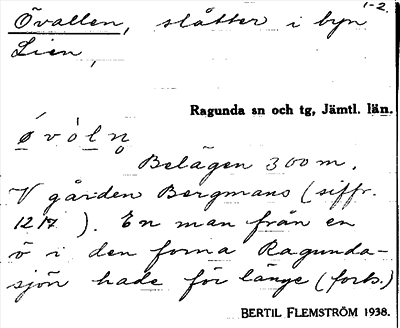 1-2.
Övallen, slåtter i byn
Lien,
Ragunda sn och tg, Jämtl. län.
Belägen 300 m.
V gården Bergmans (siffr.
12/7 ). En man från en
ö i den forna Ragunda-
sjön hade för länge (forts.)
BERTIL FLEMSTRÖM 1938.